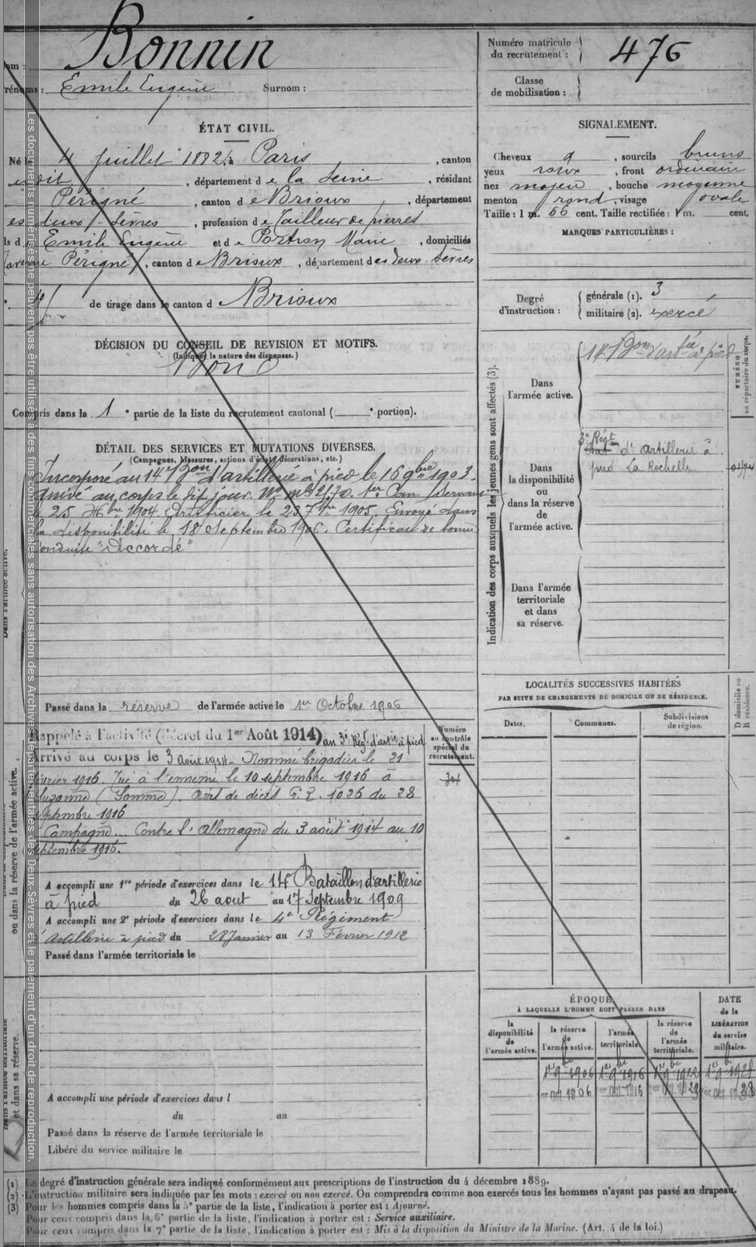 Bonnin
Nom :
Prénoms : Emile Eugène Surnom :
Numéro matricule du recrutement : 476
Classe de mobilisation :
ÉTAT CIVIL.
Né le 4 Juillet 1882, à Paris, canton
dudit, département de la Seine, résidant
Périgné, canton de Brioux, département
des deux Sèvres, profession de Tailleur de pierres
fils d Emile Eugène et de Portron Marie, domiciliés
Périgné, canton de Brioux, département des deux Sèvres
de tirage dans le canton d Brioux
SIGNALEMENT.
Cheveux, sourcils bruns
yeux roux, front ordinaire
nez moyen, bouche moyenne
menton rond, visage ovale
Taille : 1 m. 66 cent. Taille rectifiée : 1 m. cent.
MARQUES PARTICULIÈRES :
Degré d'instruction : générale (1). 3
militaire (2). exercé
DÉCISION DU CONSEIL DE REVISION ET MOTIFS.
(Indiquer la nature des dispenses.)
Bon
Compris dans la 1e partie de la liste du recrutement cantonal ( e portion).
DÉTAIL DES SERVICES ET MUTATIONS DIVERSES.
(Campagnes, blessures, actions d'éclat, décorations, etc.)
Incorporé au 14e Bon d'artillerie à pied le 16 9bre 1903.
arrivé au corps le dit jour. 1er Can. Servant
le 25 1904. Artificier le 23 7bre 1905. Envoyé dans
la disponibilité le 18 Septembre 1906. Certificat de bonne
conduite "Accordé"
Passé dans la réserve de l'armée active le 1er Octobre 1906
Rappelé à l'activité (Décret du 1er Août 1914) au 3e Rég. d'artie à pied
arrivé au corps le 3 août 1914. Nommé brigadier le 21
février 1916. Tué à l'ennemi le 10 septembre 1916 à
Suzanne (Somme). Avis de décès 1026 du 28
septembre 1916
Campagne. Contre l'Allemagne du 3 août 1914 au 10
septembre 1916.
Numéro au contrôle spécial du recrutement.
A accompli une 1re période d'exercices dans le 14e Bataillon d'artillerie
à pied du 26 aout au 17 Septembre 1909
A accompli une 2e période d'exercices dans le 4e Régiment
Artillerie à pied du 28 Janvier au 13 Février 1912
Passé dans l'armée territoriale le
A accompli une période d'exercices dans l
du au
Passé dans la réserve de l'armée territoriale le
Libéré du service militaire le
Indication des corps auxquels les jeunes gens sont affectés (3).
Dans l'armée active.
14e Bon d'artie à pied
Dans la disponibilité ou dans la réserve de l'armée active.
3e Régt d'artillerie à
pied La Rochelle
Dans l'armée territoriale et dans sa réserve.
NUMÉRO au répertoire du corps.
LOCALITÉS SUCCESSIVES HABITÉES
PAR SUITE DE CHANGEMENTS DE DOMICILE OU DE RÉSIDENCE.
Dates. Communes. Subdivisions de région. D domicile ou R résidence.
ÉPOQUE
À LAQUELLE L'HOMME DOIT PASSER DANS
la disponibilité de l'armée active. la réserve de l'armée active. l'armée territoriale. la réserve de l'armée territoriale.
DATE de la LIBÉRATION du service militaire.
(1) Le degré d'instruction générale sera indiqué conformément aux prescriptions de l'instruction du 4 décembre 1889.
(2) L'instruction militaire sera indiquée par les mots : exercé ou non exercé. On comprendra comme non exercés tous les hommes n'ayant pas passé au drapeau.
(3) Pour les hommes compris dans la 5e partie de la liste, l'indication à porter est : Ajourné.
Pour ceux compris dans la 6e partie de la liste, l'indication à porter est : Service auxiliaire.
Pour ceux compris dans la 7e partie de la liste, l'indication à porter est : Mis à la disposition du Ministre de la Marine. (Art. 4 de la loi.)